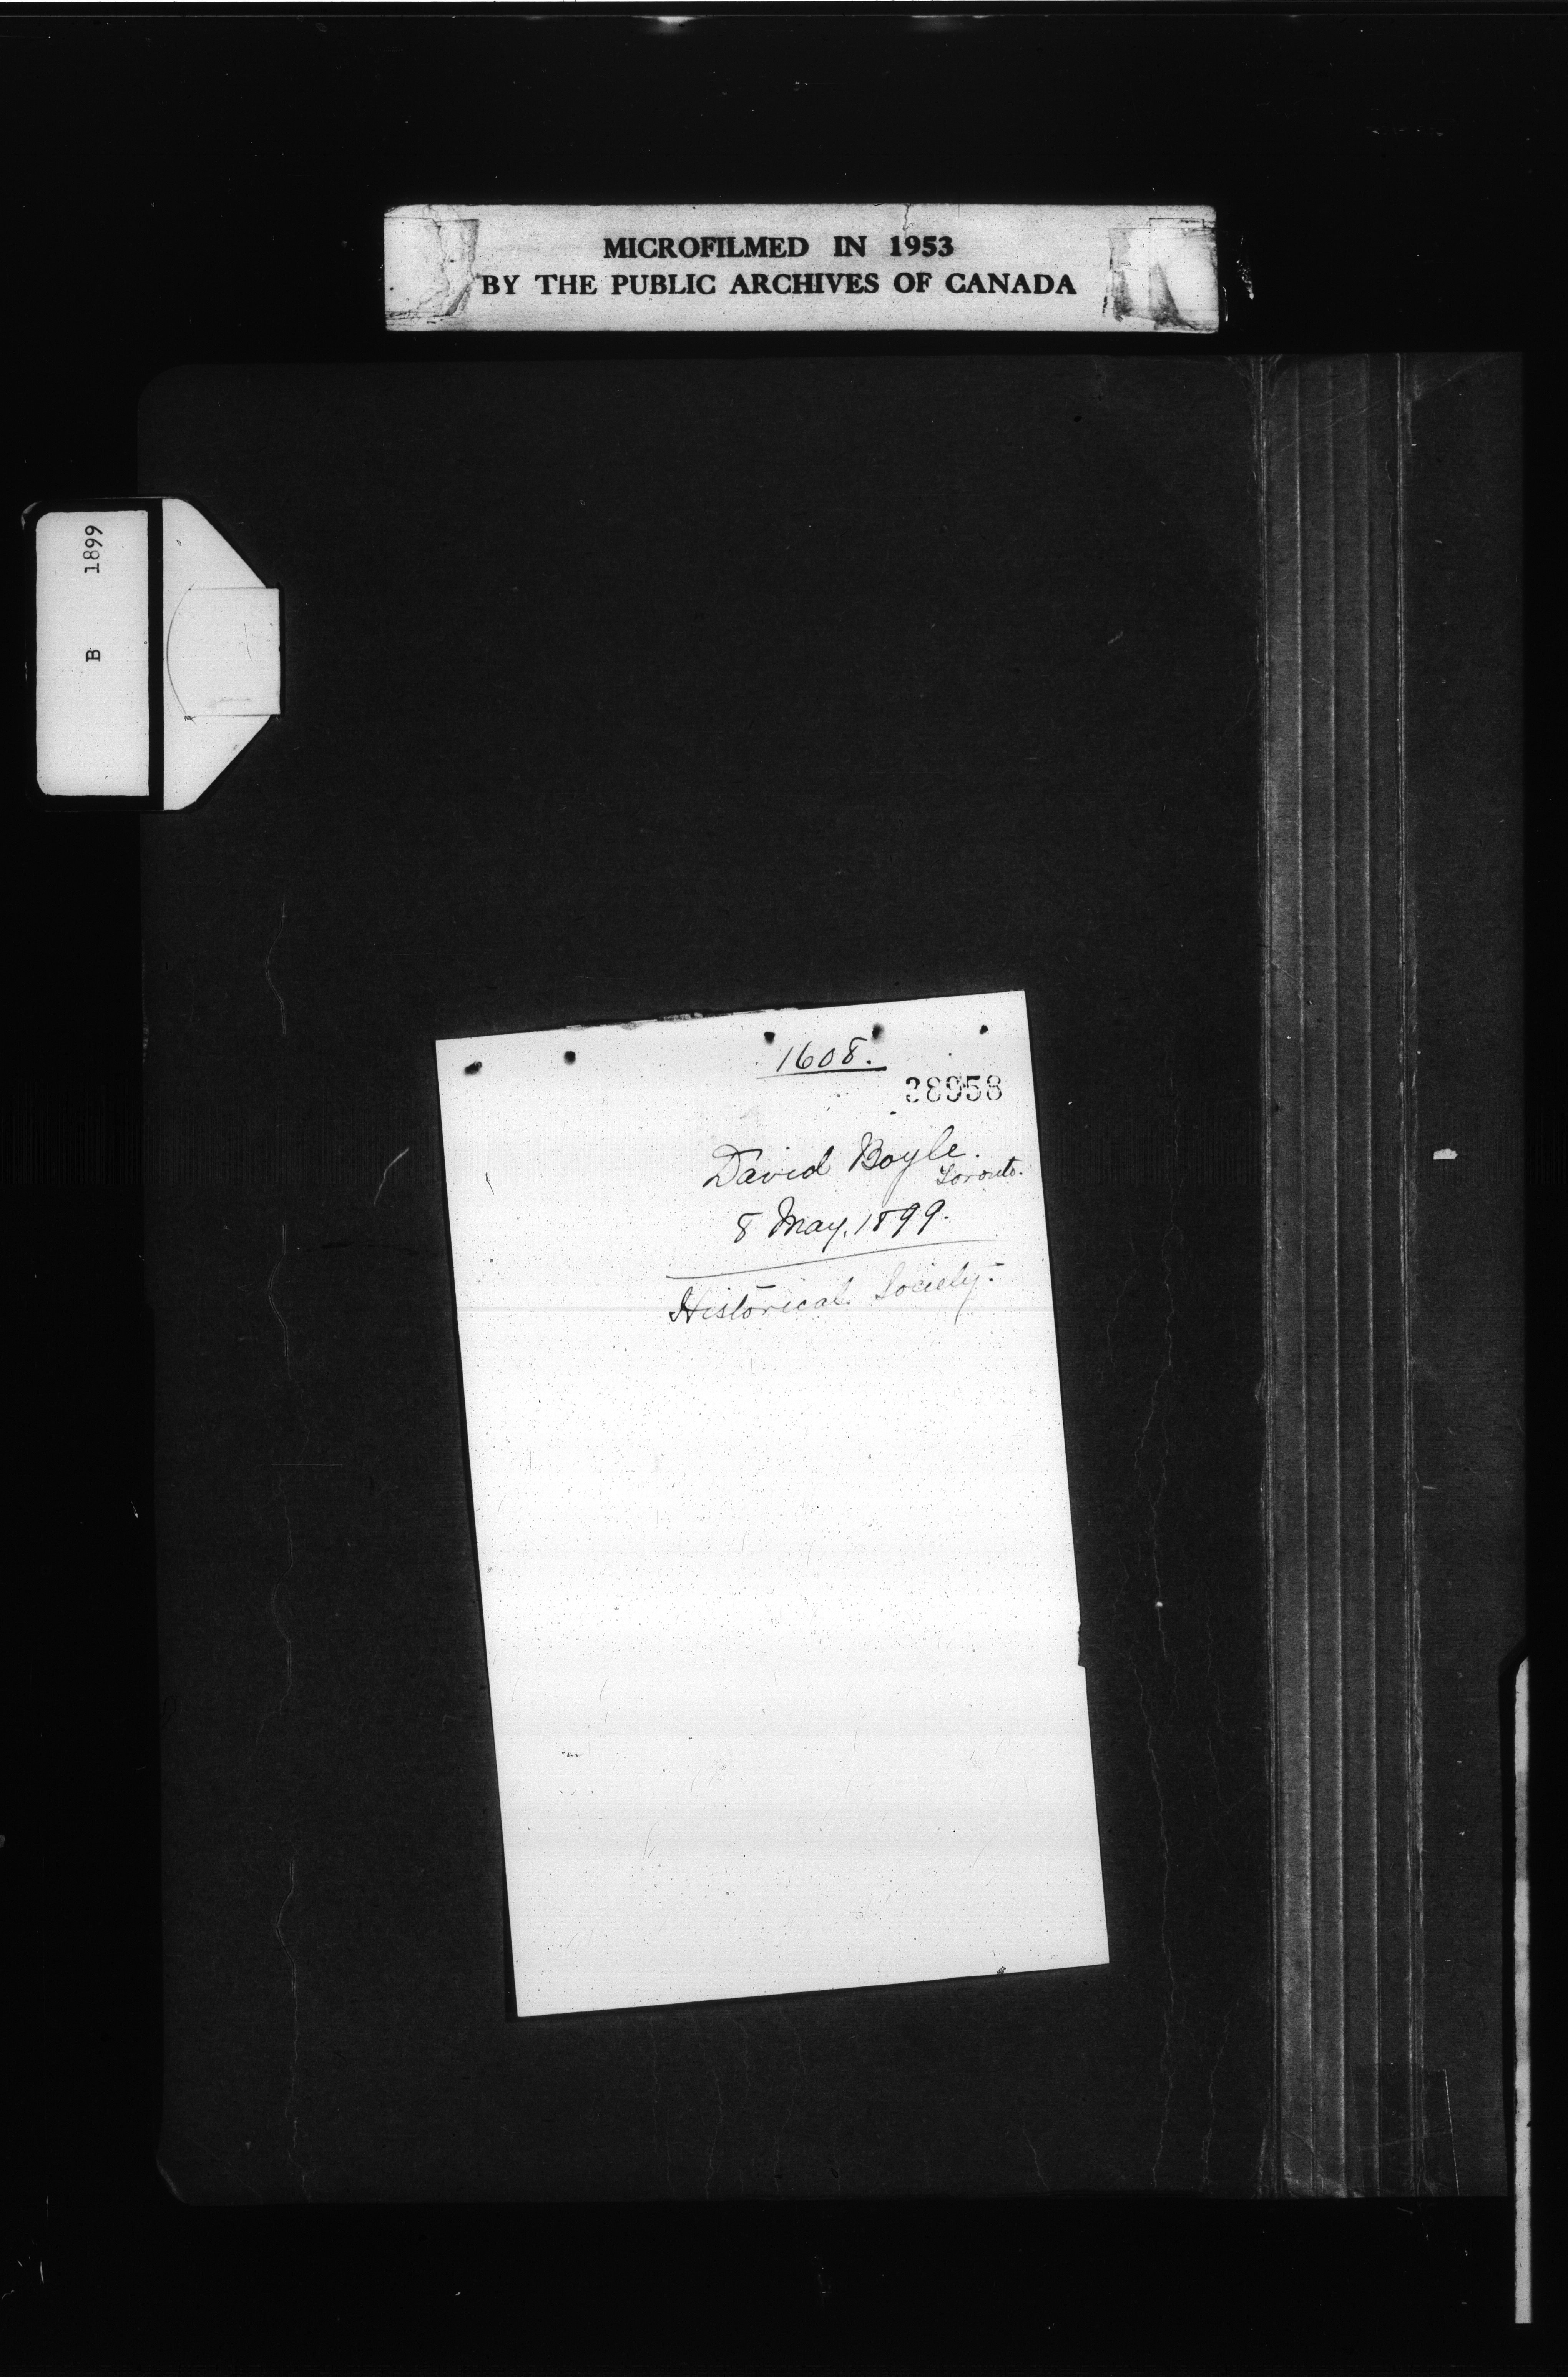 MICROFILMED IN 1953
BY THE PUBLIC ARCHIVES OF CANADA
B 1899
1608.
38958
David Boyle.
Toronto.
8 May, 1899.
Historical Society.